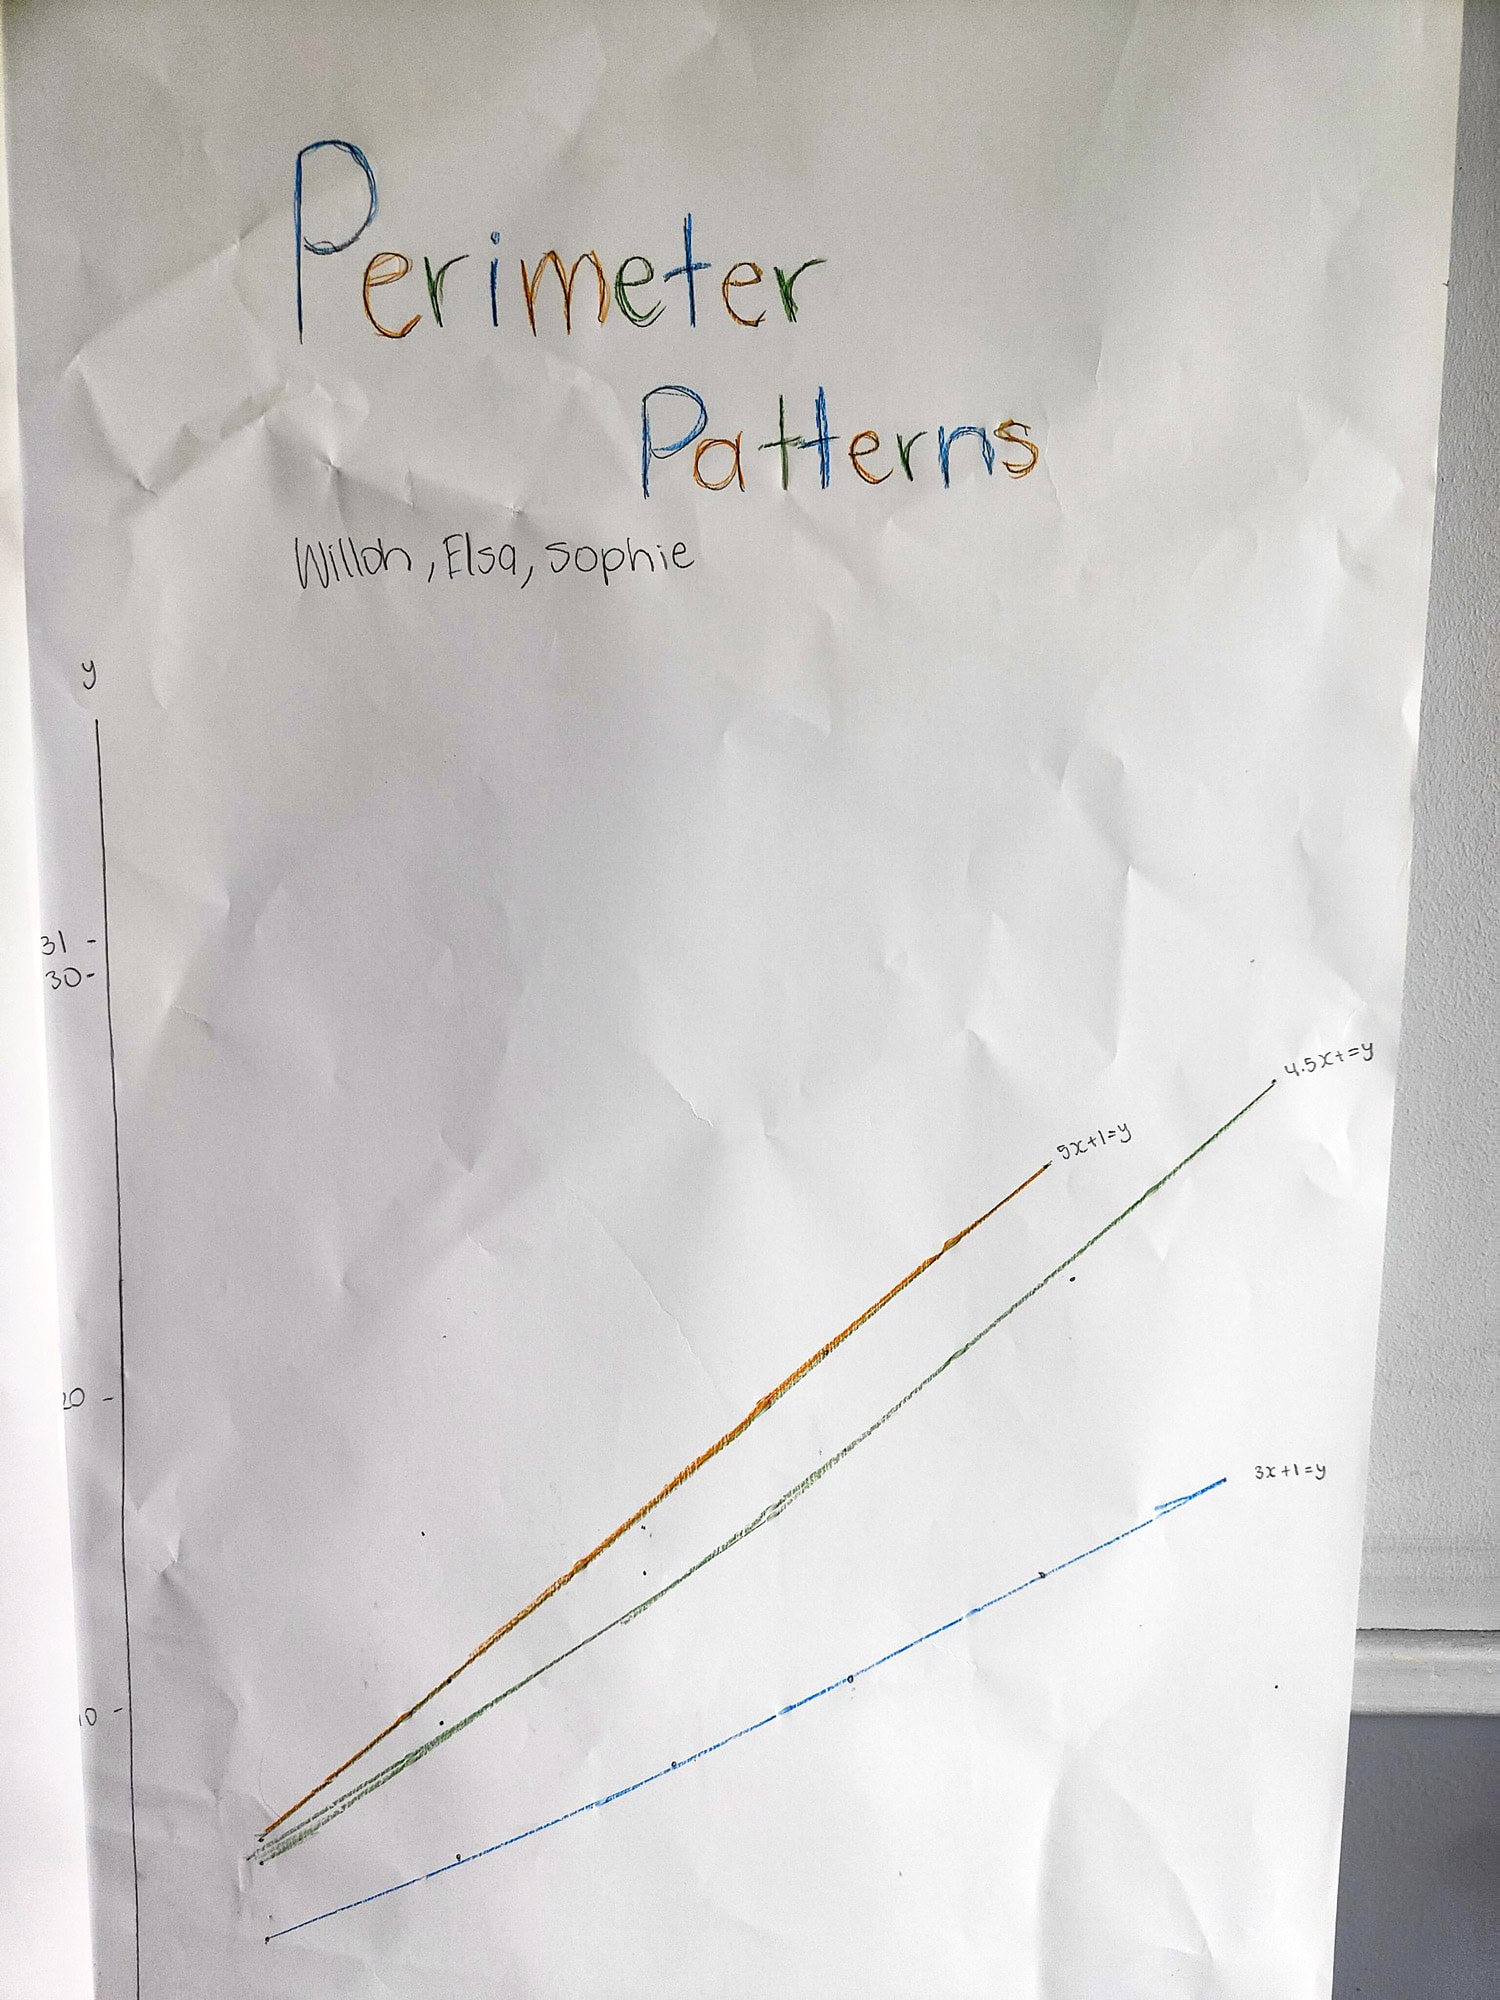 Perimeter
Patterns
Willoh, Elsa, Sophie
y
31
30
4.5x+=y
5x+1=y
20
3x+1=y
10